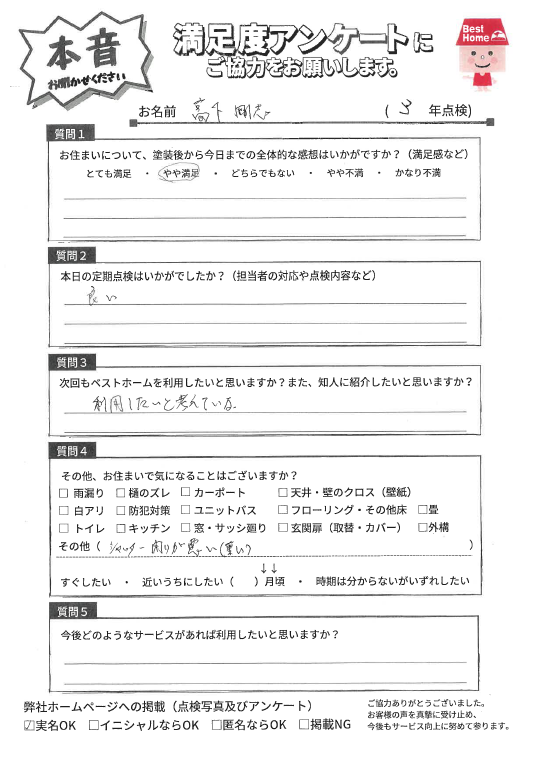 本音
お聞かせください
満足度アンケートに
ご協力をお願いします。
Best Home
お名前 高下 剛志 ( 3 年点検)
質問1
お住まいについて、塗装後から今日までの全体的な感想はいかがですか?(満足感など)
とても満足 ・ やや満足 ・ どちらでもない ・ やや不満 ・ かなり不満
質問2
本日の定期点検はいかがでしたか?(担当者の対応や点検内容など)
良い
質問3
次回もベストホームを利用したいと思いますか?また、知人に紹介したいと思いますか?
利用したいと考えている。
質問4
その他、お住まいで気になることはございますか?
□ 雨漏り □ 樋のズレ □ カーポート □ 天井・壁のクロス(壁紙)
□ 白アリ □ 防犯対策 □ ユニットバス □ フローリング・その他床 □畳
□ トイレ □ キッチン □ 窓・サッシ廻り □ 玄関扉(取替・カバー) □外構
その他( シャッター 閉りが悪い(重い) )
↓↓
すぐしたい ・ 近いうちにしたい( )月頃 ・ 時期は分からないがいずれしたい
質問5
今後どのようなサービスがあれば利用したいと思いますか?
弊社ホームページへの掲載(点検写真及びアンケート)
☑実名OK □イニシャルならOK □匿名ならOK □掲載NG
ご協力ありがとうございました。
お客様の声を真摯に受け止め、
今後もサービス向上に努めて参ります。